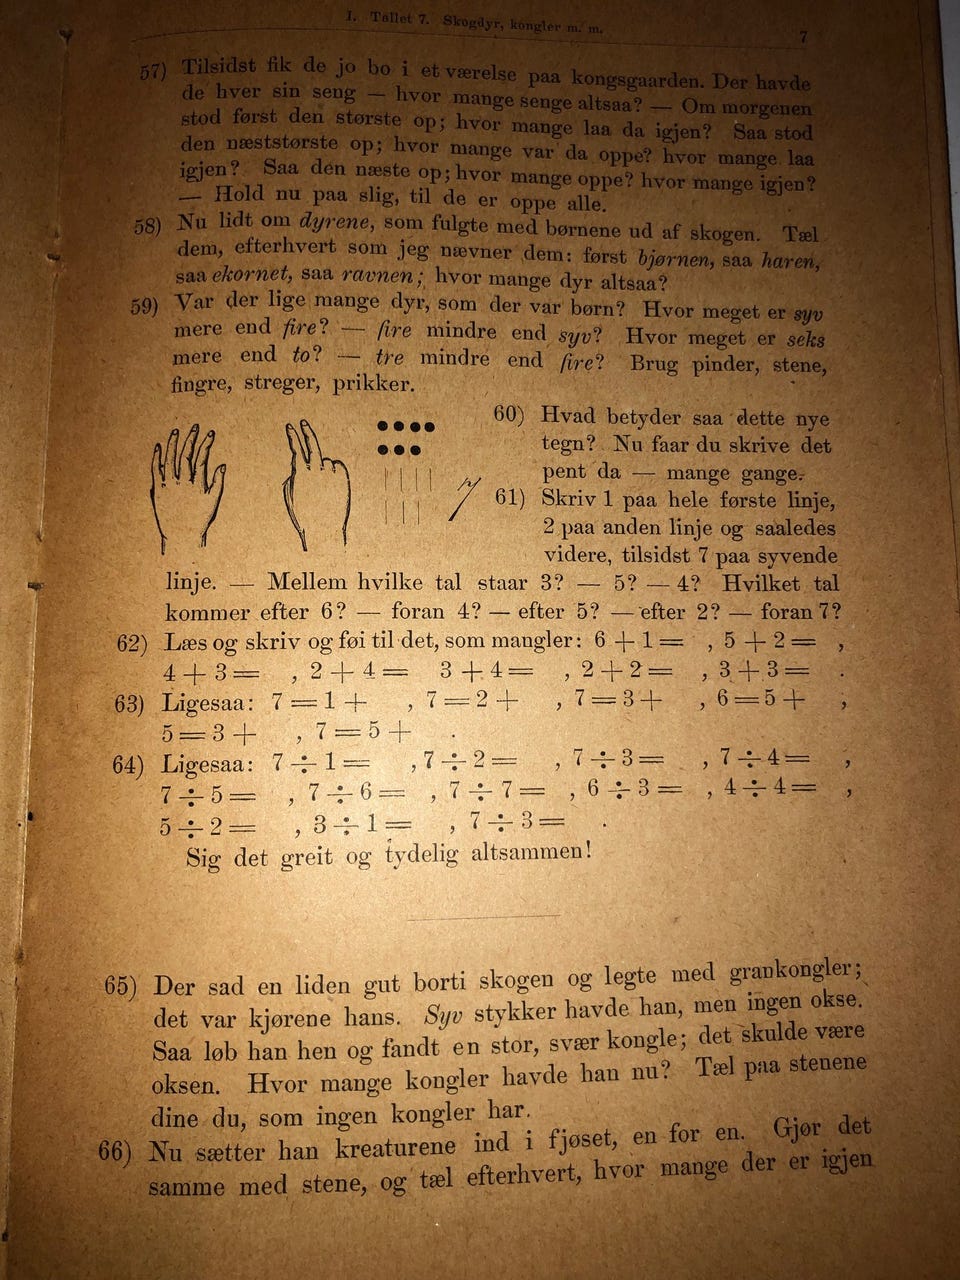 I. Tallet 7. Skogdyr, kongler m. m.
7
57) Tilsidst fik de jo bo i et værelse paa kongsgaarden. Der havde
de hver sin seng — hvor mange senge altsaa? — Om morgenen
stod først den største op; hvor mange laa da igjen? Saa stod
den næststørste op; hvor mange var da oppe? hvor mange laa
igjen? Saa den næste op; hvor mange oppe? hvor mange igjen?
— Hold nu paa slig, til de er oppe alle.
58) Nu lidt om dyrene, som fulgte med børnene ud af skogen. Tæl
dem, efterhvert som jeg nævner dem: først bjørnen, saa haren,
saa ekornet, saa ravnen; hvor mange dyr altsaa?
59) Var der lige mange dyr, som der var børn? Hvor meget er syv
mere end fire? — fire mindre end syv? Hvor meget er seks
mere end to? — tre mindre end fire? Brug pinder, stene,
fingre, streger, prikker.
60) Hvad betyder saa dette nye
tegn? Nu faar du skrive det
pent da — mange gange.
7
61) Skriv 1 paa hele første linje,
2 paa anden linje og saaledes
videre, tilsidst 7 paa syvende
linje. — Mellem hvilke tal staar 3? — 5? — 4? Hvilket tal
kommer efter 6? — foran 4? — efter 5? — efter 2? — foran 7?
62) Læs og skriv og føi til det, som mangler: 6 + 1 = , 5 + 2 = ,
4 + 3 = , 2 + 4 = 3 + 4 = , 2 + 2 = , 3 + 3 = .
63) Ligesaa: 7 = 1 + , 7 = 2 + , 7 = 3 + , 6 = 5 + ,
5 = 3 + , 7 = 5 + .
64) Ligesaa: 7 ÷ 1 = , 7 ÷ 2 = , 7 ÷ 3 = , 7 ÷ 4 = ,
7 ÷ 5 = , 7 ÷ 6 = , 7 ÷ 7 = , 6 ÷ 3 = , 4 ÷ 4 = ,
5 ÷ 2 = , 3 ÷ 1 = , 7 ÷ 3 = .
Sig det greit og tydelig altsammen!
65) Der sad en liden gut borti skogen og legte med grankongler;
det var kjørene hans. Syv stykker havde han, men ingen okse.
Saa løb han hen og fandt en stor, svær kongle; det skulde være
oksen. Hvor mange kongler havde han nu? Tæl paa stenene
dine du, som ingen kongler har.
66) Nu sætter han kreaturene ind i fjøset, en for en. Gjør det
samme med stene, og tæl efterhvert, hvor mange der er igjen